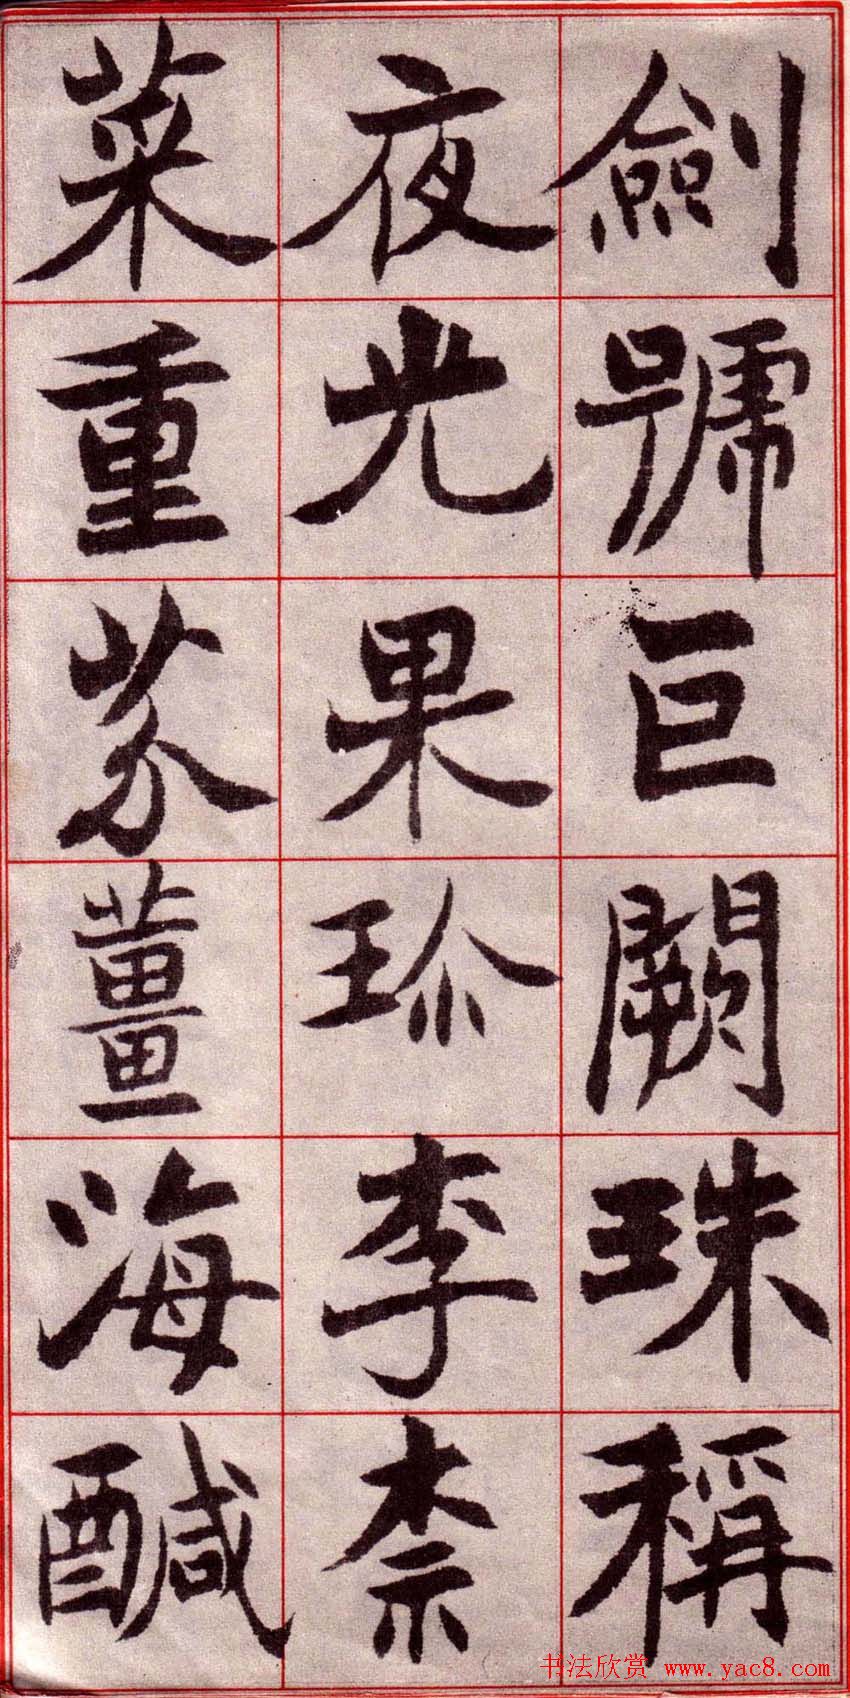 劍號巨闕珠稱
夜光果珍李柰
菜重芥薑海醎
书法欣赏 www.yac8.com